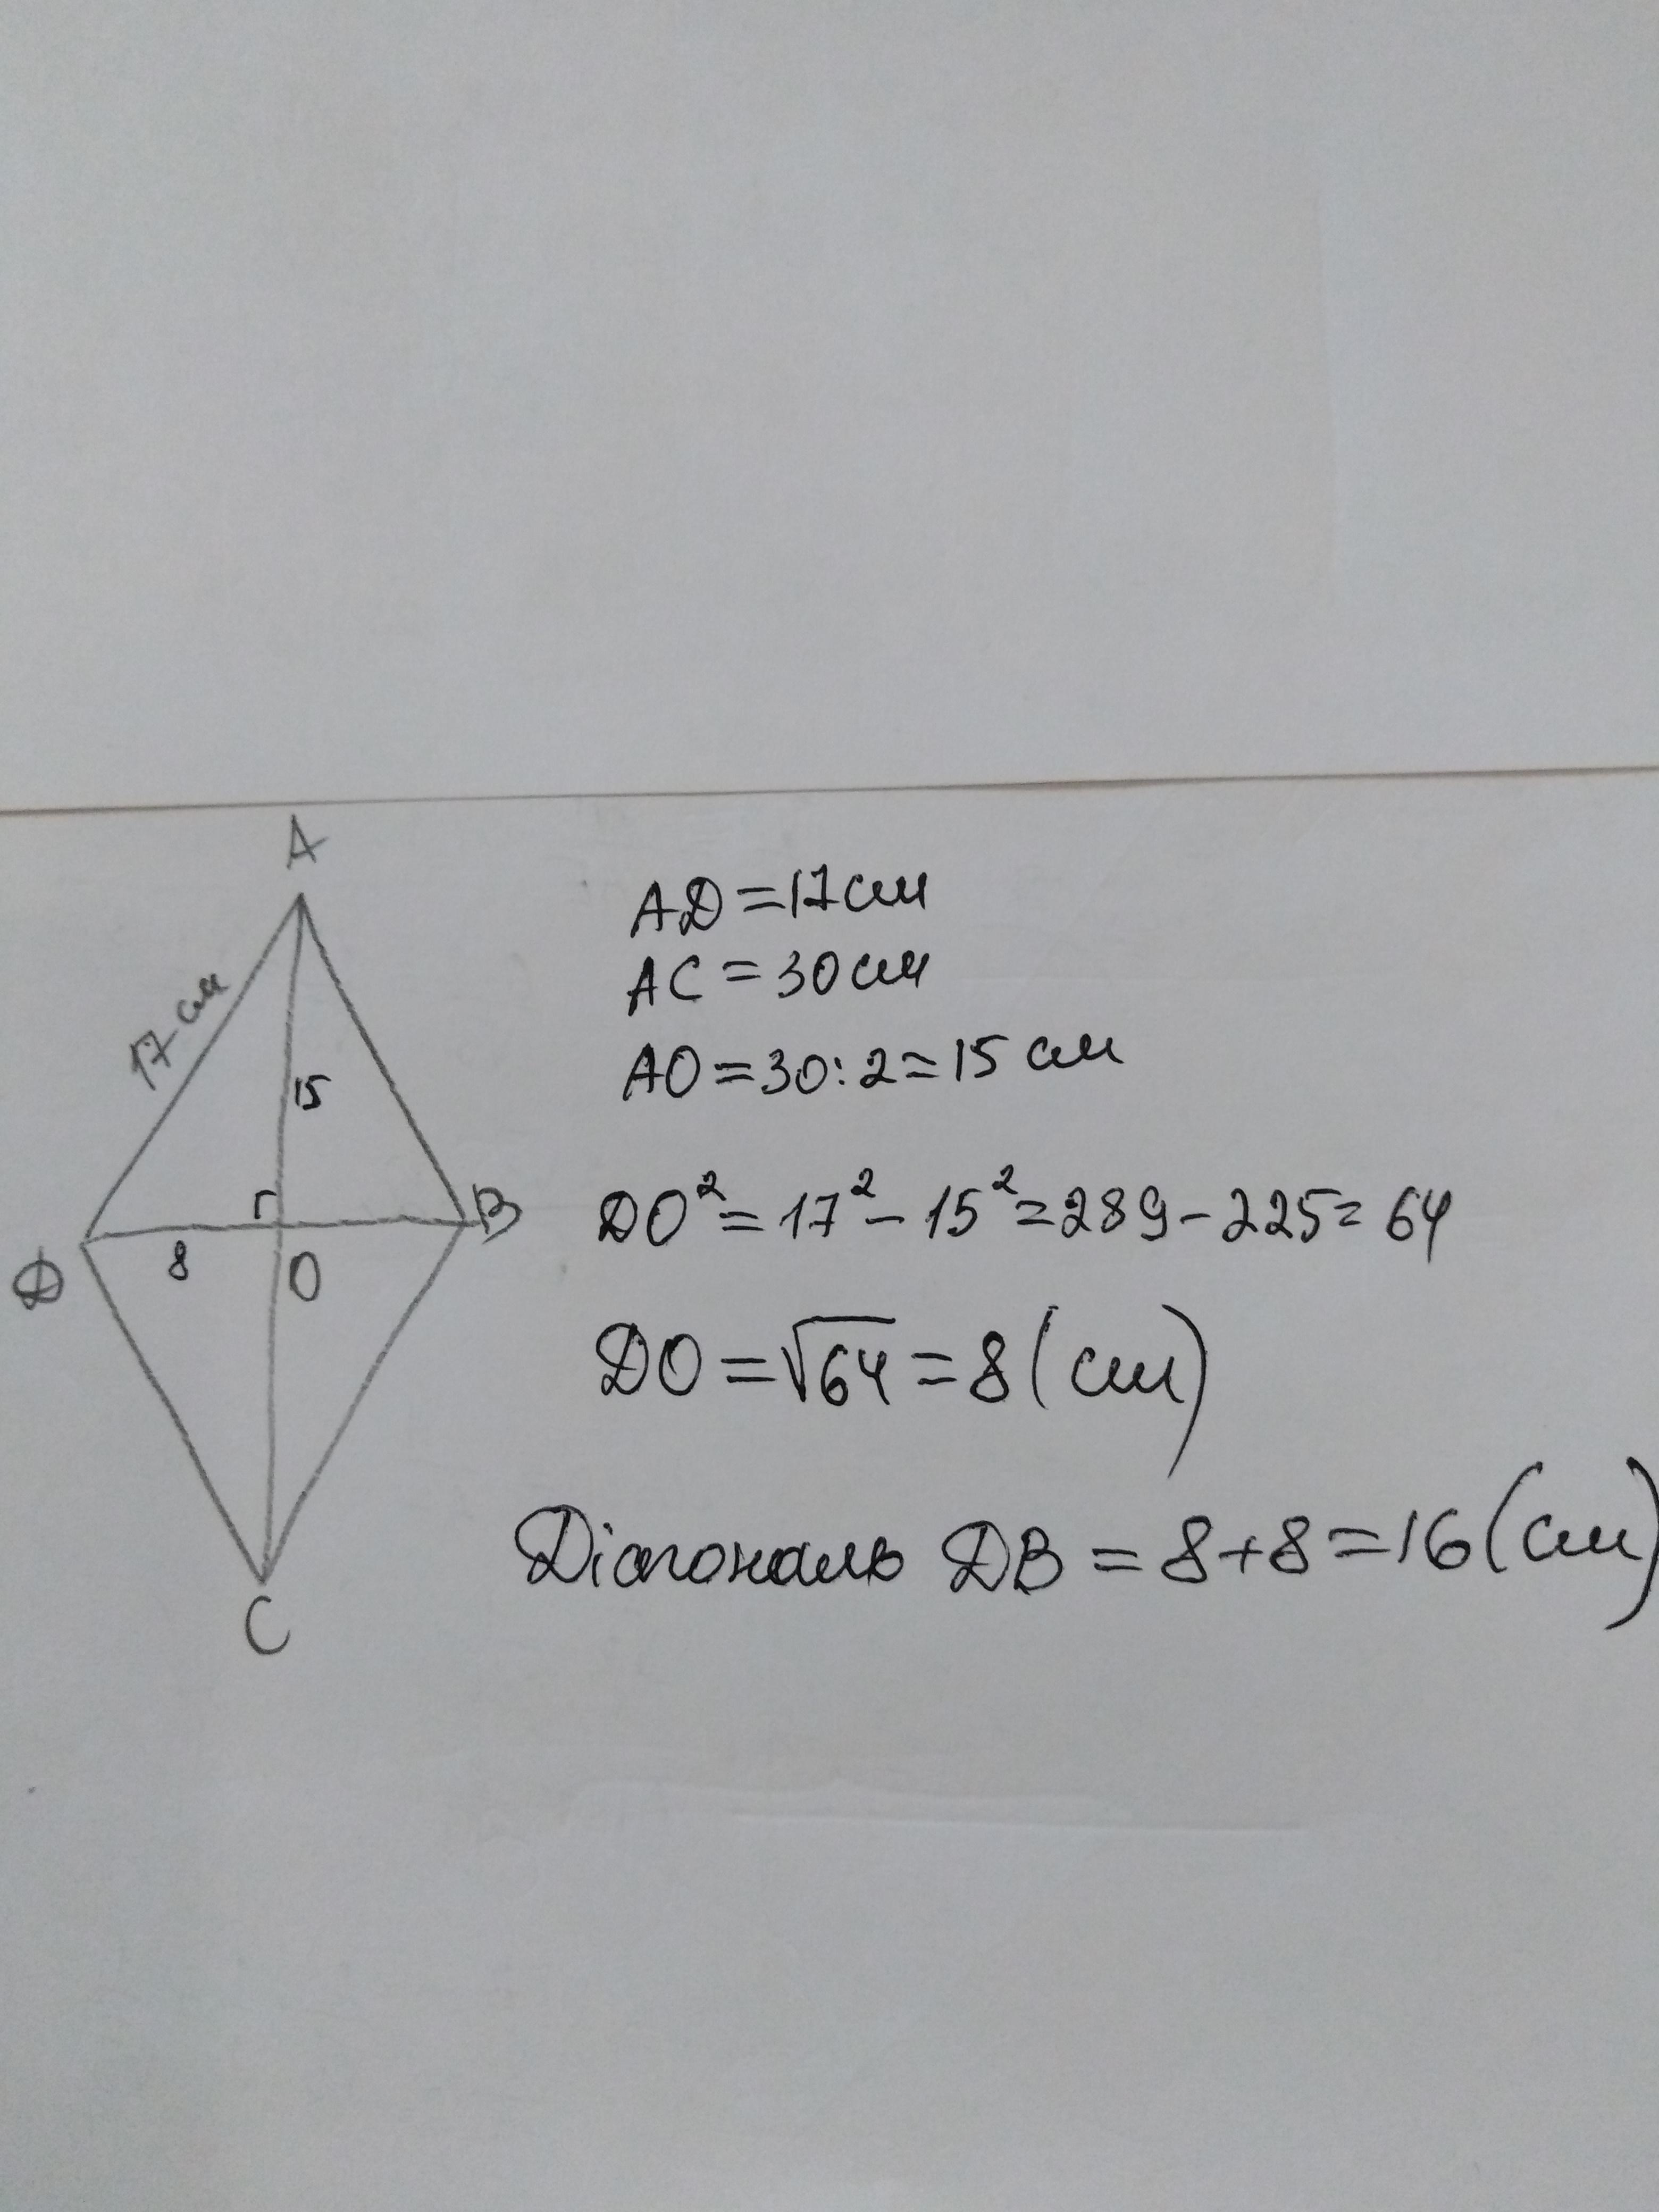 A
17 см
15
B
8
O
D
C
AD=17см
AC=30см
AO=30:2=15 см
DO²=17²-15²=289-225=64
DO=√64=8(см)
Діагональ DB=8+8=16(см)